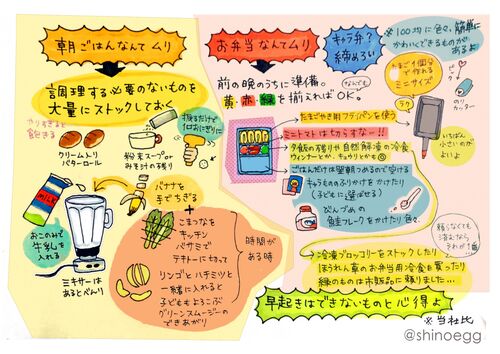 朝ごはんなんてムリ
調理する必要のないものを
大量にストックしておく
やりすぎると
飽きる
クリームトリ
バターロール
粉末スープor
みそ汁の残り
バナナを
手でちぎる
お好みで
牛乳を
入れる
ミキサーは
あるとべんり
+
こまつなを
キッチン
バサミで
テキトーに切って
リンゴとハチミツと
一緒に入れると
子どももよろこぶ
グリーンスムージーの
できあがり
時間が
ある時
お弁当なんてムリ
キャラ弁?
締めろい
※100均に色々、簡単に
かわいくできるものが
あるよ
前の晩のうちに準備。
黄・赤・緑を揃えればOK。
なんでも
たまご1個分
で作れる
ミニサイズ
ラク
ピック
のりカッター
いちばん
小さいのが
よいよ
たまごやき用フライパンを使う
ミニトマトは欠かせない!!
夕飯の残りや自然解凍の冷食
ウインナーとか、キョウリとかも◎
ごはんだけは翌朝つめるので溶ける
キャラもののふりかけをかけたり
(子どもに選ばせる)
どんぶめの
鮭フレークをかけたり色々。
冷凍ブロッコリーをストックしたり
ほうれん草のお弁当用冷食を買ったり
緑のものは市販品に頼りました…
早起きはできないものと心得よ
※当社比
@shinoegg